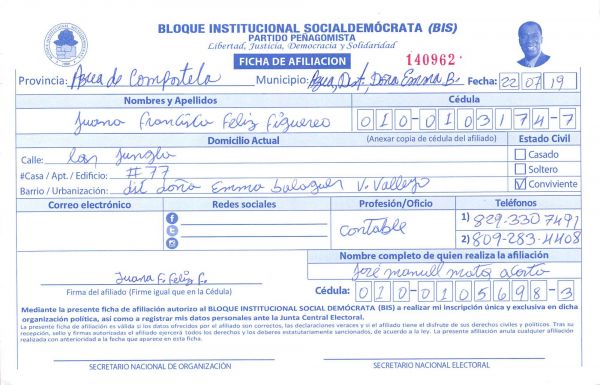 BLOQUE INSTITUCIONAL SOCIALDEMÓCRATA (BIS)
PARTIDO PEÑAGOMISTA
Libertad, Justicia, Democracia y Solidaridad
FICHA DE AFILIACION
140962
Provincia: Azua de Compostela Municipio: Azua, Dist. Doña Emma B. Fecha: 22 07 19
Nombres y Apellidos Cédula
Juana Francista Feliz Figuereo 010-0103174-7
Domicilio Actual (Anexar copia de cédula del afiliado) Estado Civil
Calle: las Jungla Casado
#Casa / Apt. / Edificio: # 77 Soltero
Barrio / Urbanización: dit doña Emma balaguer V. Vallejo Conviviente
Correo electrónico Redes sociales Profesión/Oficio Teléfonos
Contable 1) 829-330 7491
2) 809-283-4408
Nombre completo de quien realiza la afiliación
Juana F. Feliz F. José manuel mota
Firma del afiliado (Firme igual que en la Cédula) Cédula: 010-0105698-3
Mediante la presente ficha de afiliación autorizo al BLOQUE INSTITUCIONAL SOCIAL DEMÓCRATA (BIS) a realizar mi inscripción única y exclusiva en dicha
organización política, así como a registrar mis datos personales ante la Junta Central Electoral.
La presente ficha de afiliación es válida si los datos ofrecidos por el afiliado son correctos, las declaraciones veraces y si el afiliado tiene el disfrute de sus derechos civiles y políticos. Tras su
recepción, sello y firmas autorizadas el afiliado ejercerá todos los derechos y los deberes estatutariamente sancionados, de acuerdo a la ley. La presente afiliación anula cualquier afiliación
realizada con anterioridad a la fecha que aparece en esta ficha.
SECRETARIO NACIONAL DE ORGANIZACIÓN SECRETARIO NACIONAL ELECTORAL